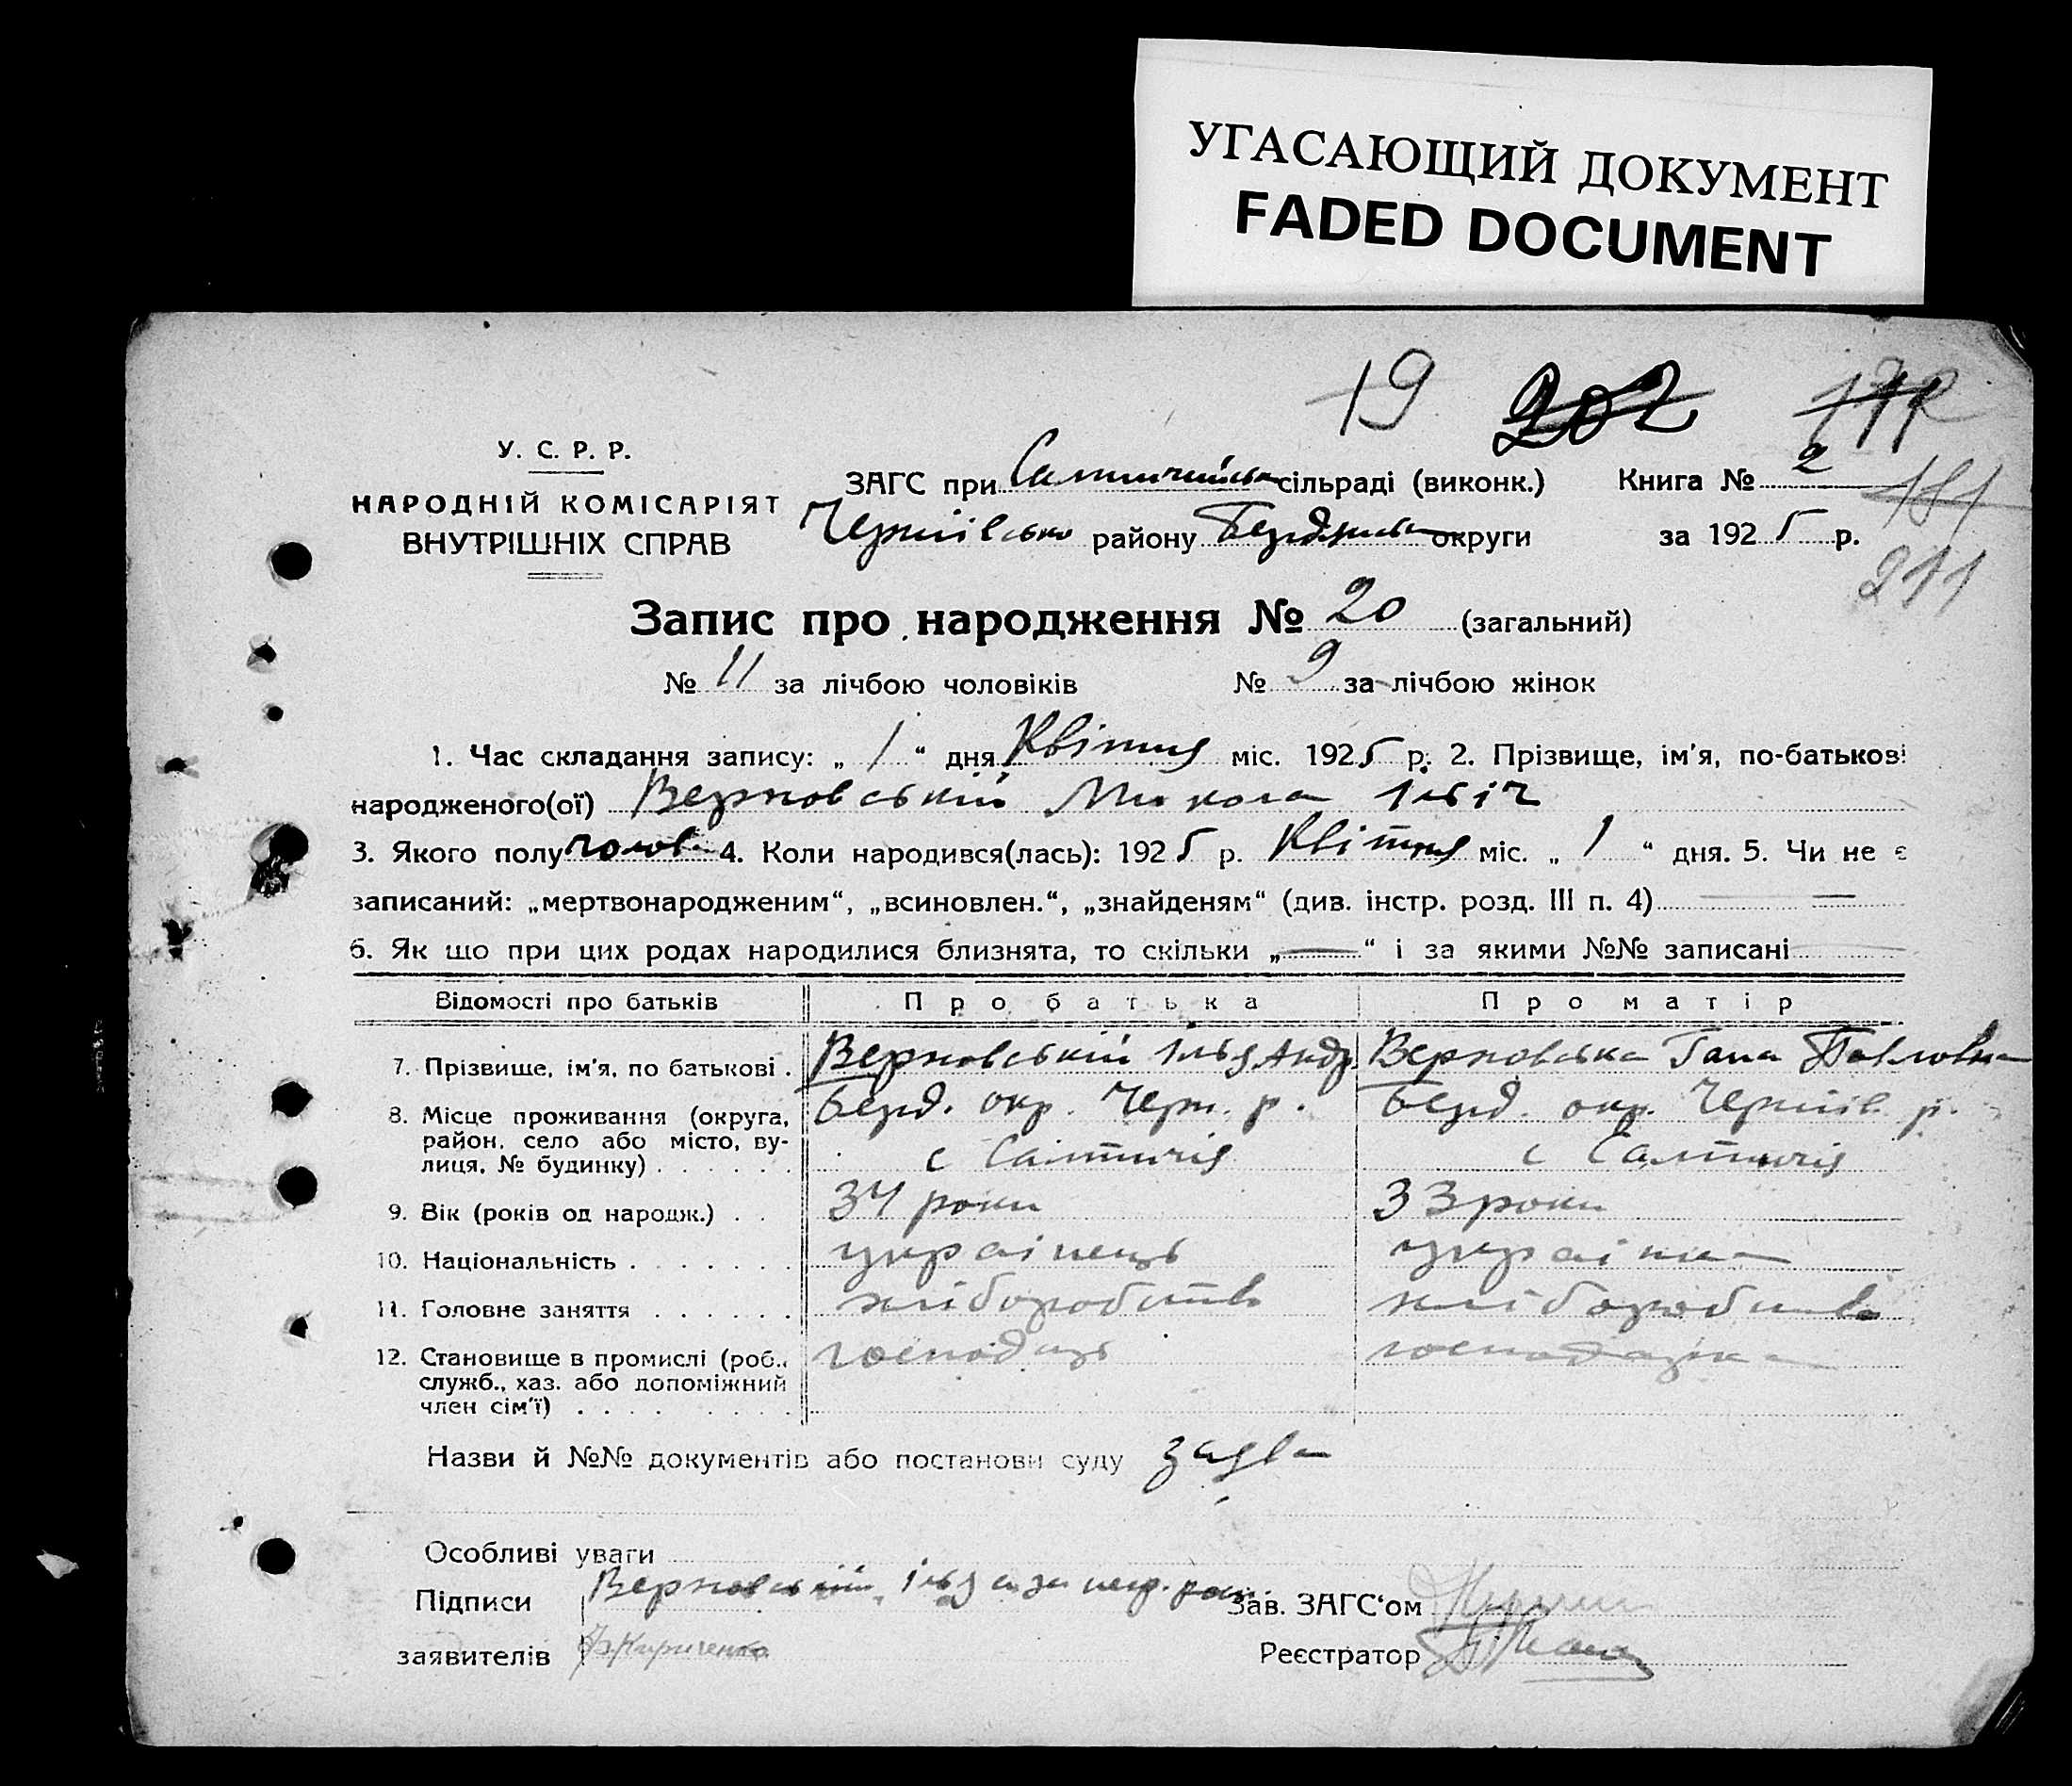 УГАСАЮЩИЙ ДОКУМЕНТ
FADED DOCUMENT
19 202
У. С. Р. Р.
НАРОДНІЙ КОМІСАРІЯТ
ВНУТРІШНІХ СПРАВ
ЗАГС при Салтичийськ сільраді (виконк.) Книга № 2 181
Чернігівсько району Бердянсько округи за 1925 р.
211
Запис про народження № 20 (загальний)
№ 11 за лічбою чоловіків № 9 за лічбою жінок
1. Час складання запису: „ 1 “ дня Квітня міс. 1925 р. 2. Прізвище, ім'я, по-батькові
народженого(ої) Верновський Микола Ільіч
3. Якого полу чолов. 4. Коли народився(лась): 1925 р. Квітня міс. „ 1 “ дня. 5. Чи не є
записаний: „мертвонародженим“, „всиновлен.“, „знайденям“ (див. інстр. розд. III п. 4) —
6. Як що при цих родах народилися близнята, то скільки „—“ і за якими №№ записані
Відомості про батьків Про батька Про матір
7. Прізвище, ім'я, по батькові . Верновській Ілья Андр. Верновська Гана Павловна
8. Місце проживання (округа, Берд. окр. Черн. р. Берд. окр. Черніг. р.
район, село або місто, ву-
лиця, № будинку) . . . . . . с Салтичія с Салтичія
9. Вік (років од народж.) . . 34 роки 33 роки
10. Національність . . . . . . . українець українка
11. Головне заняття . . . . . . хліборобство хліборобство
12. Становище в промислі (роб., господарь господарка
служб., хаз. або допоміжний
член сім'ї) . . . . . . . .
Назви й №№ документів або постанови суду заява
Особливі уваги
Підписи Верновській Ілья а за негр. рос. Зав. ЗАГС‘ом
заявителів Кириченко Реєстратор